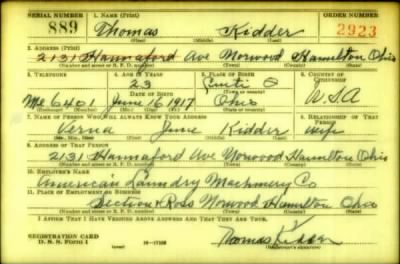 SERIAL NUMBER 1. NAME (Print) ORDER NUMBER
889 Thomas Kidder 2923
(First) (Middle) (Last)
2. ADDRESS (Print)
2131 Hannaford Ave Norwood Hamilton Ohio
(Number and street or R. F. D. number) (Town) (County) (State)
3. TELEPHONE 4. AGE IN YEARS 5. PLACE OF BIRTH 6. COUNTRY OF CITIZENSHIP
23 Cinti O
DATE OF BIRTH
Me 6401 June 16 1917 Ohio U.S.A
7. NAME OF PERSON WHO WILL ALWAYS KNOW YOUR ADDRESS 8. RELATIONSHIP OF THAT PERSON
Verna June Kidder wife
(Mr., Mrs., Miss) (First) (Middle) (Last)
9. ADDRESS OF THAT PERSON
2131 Hannaford Ave Norwood Hamilton Ohio
(Number and street or R. F. D. number) (Town) (County) (State)
10. EMPLOYER'S NAME
American Laundry Machinery Co
11. PLACE OF EMPLOYMENT OR BUSINESS
Section & Ross Norwood Hamilton Ohio
(Number and street or R. F. D. number) (Town) (County) (State)
I AFFIRM THAT I HAVE VERIFIED ABOVE ANSWERS AND THAT THEY ARE TRUE.
REGISTRATION CARD
D. S. S. Form 1 16-17105 Thomas Kidder
(Registrant's signature)